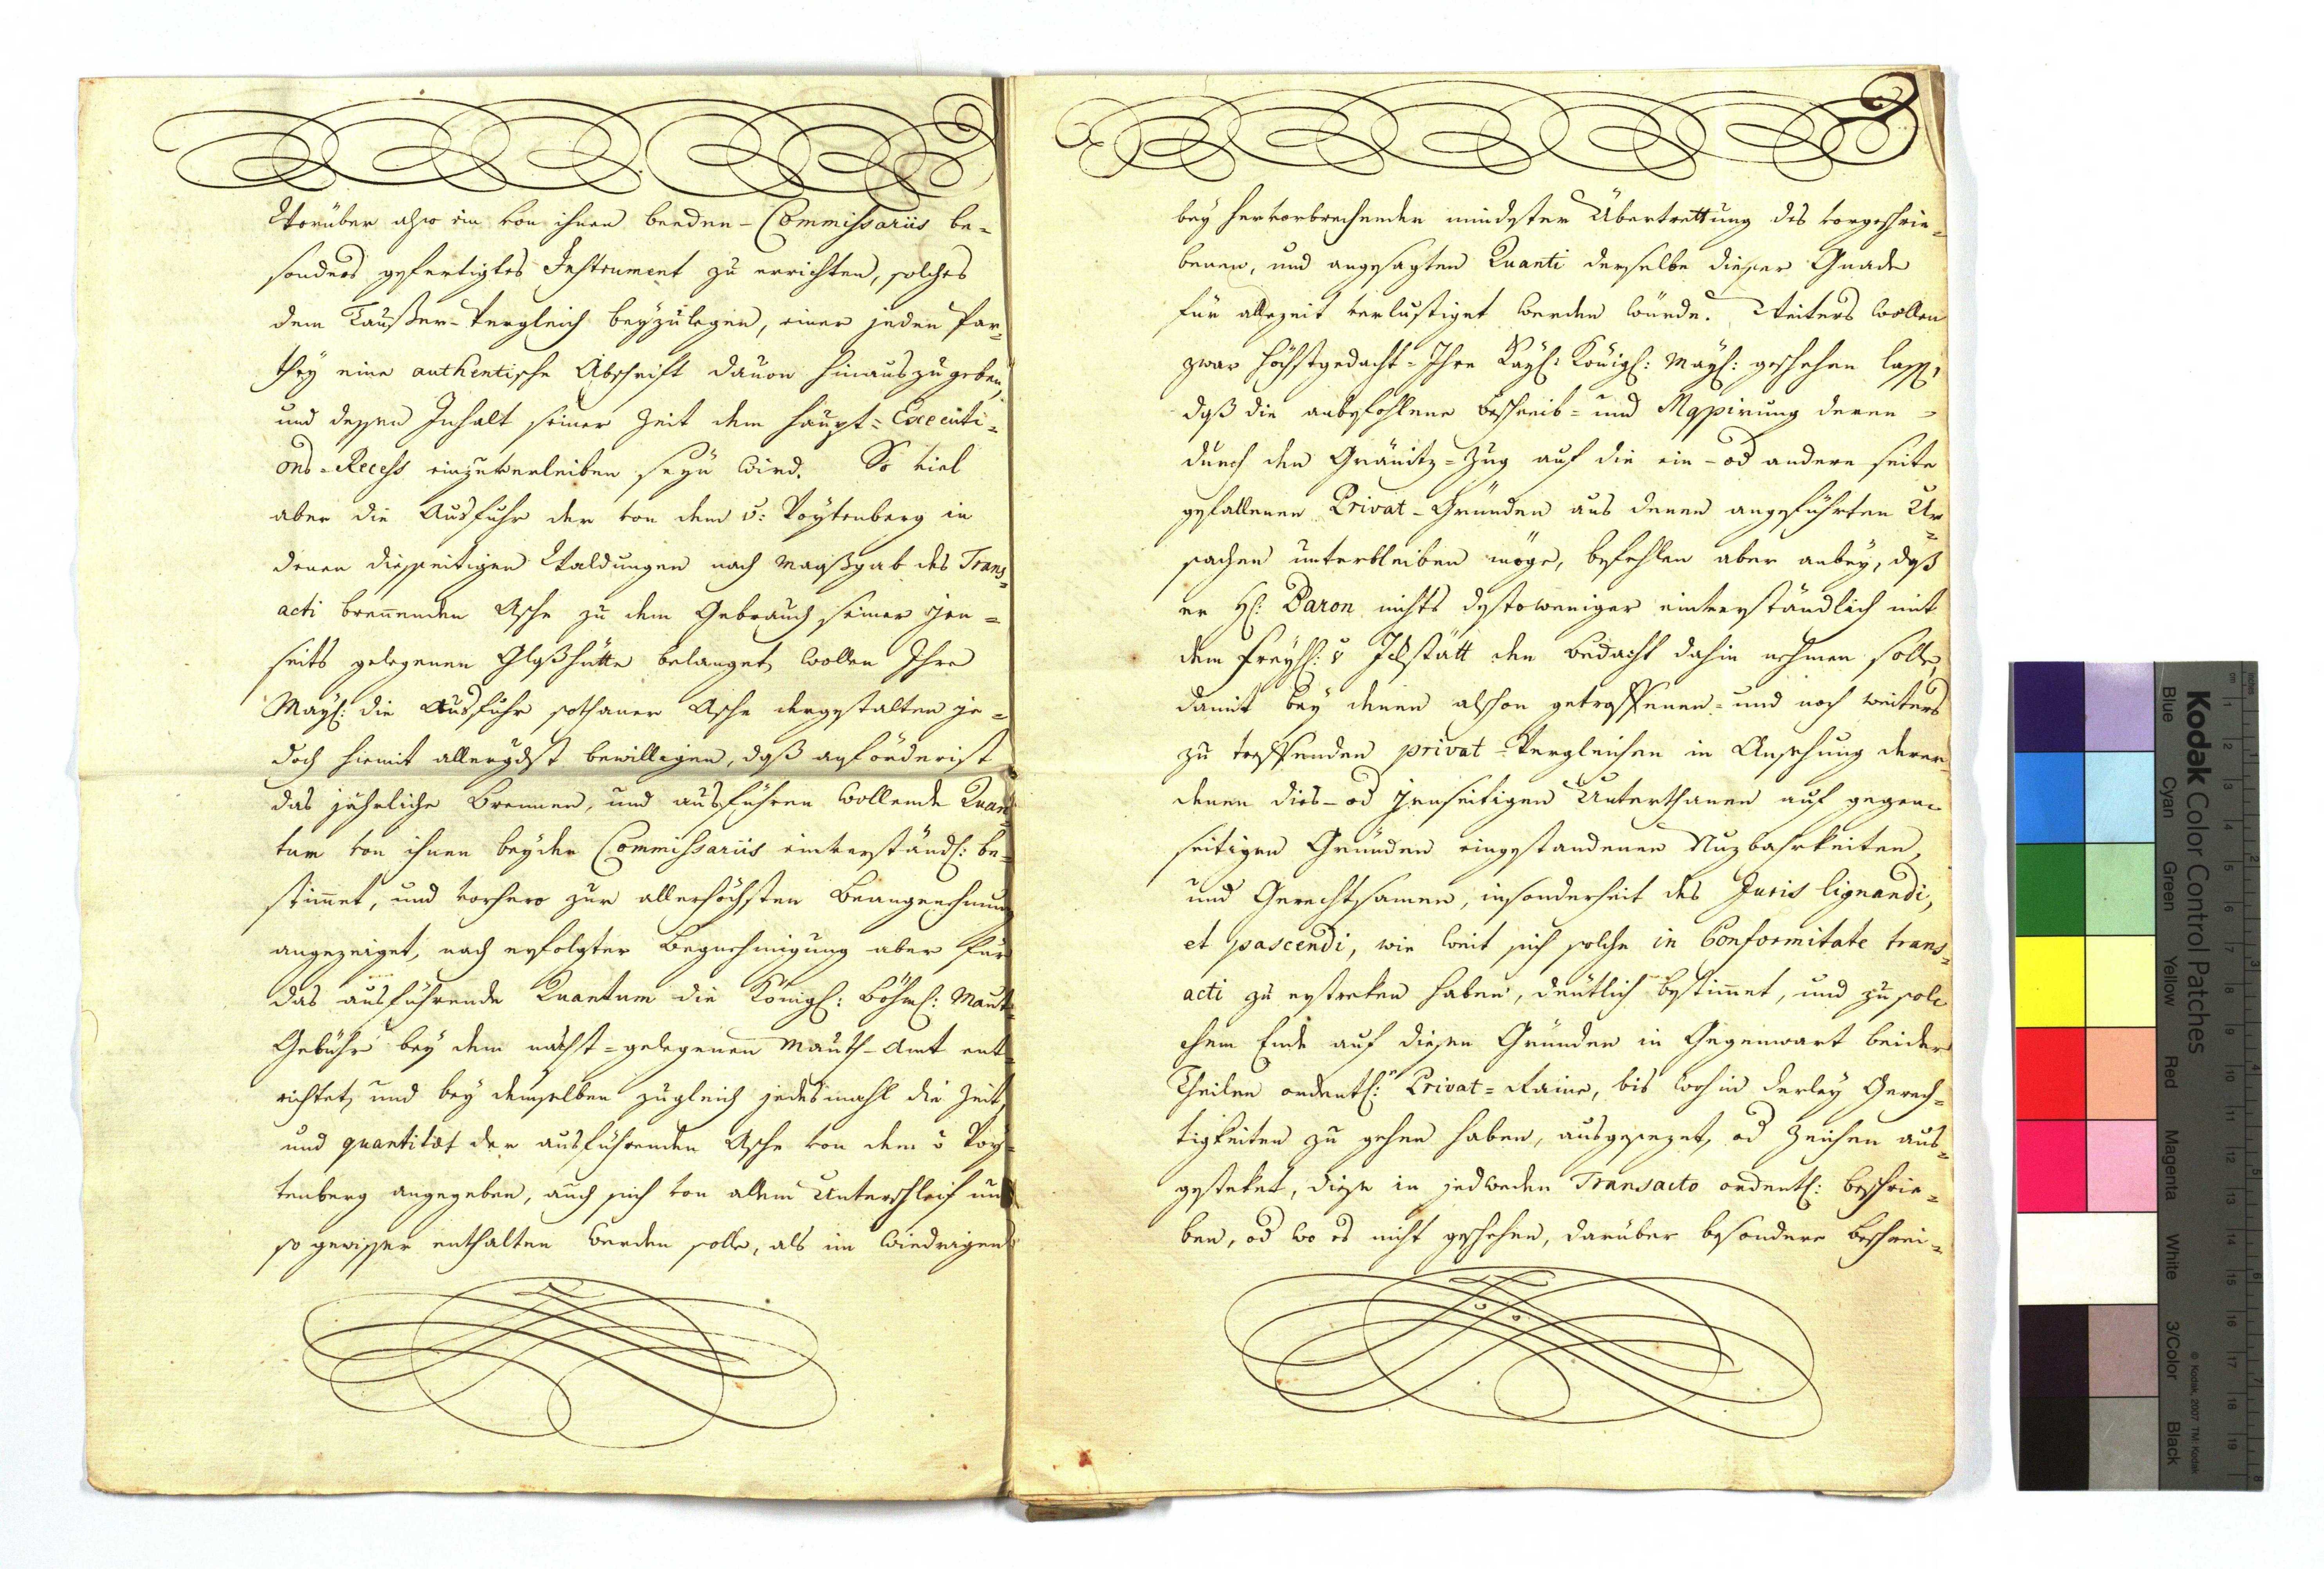 Worüber also ein von ihnen beeden-Commissariis be-
sonders gefertigtes Instrument zu errichten, solches
dem Taußer-Vergleich beyzulegen, einer jeden Par-
they eine authentische Abschrift dauon hinauszugeben,
und dessen Inhalt seiner Zeit dem haupt-Executi-
ons-Recess einzuverleiben seyn wird. So viel
aber die Ausfuhr der von dem v: Voytenberg in
denen diesseitigen Waldungen nach maaßgab des Trans-
acti brennenden Asche zu dem Gebrauch seiner jen-
seits gelegenen Glaßhütte belanget, wollen Ihre
May: die Ausfuhr sothaner Asche dergestalten je-
doch hiemit allergdst bewilligen, daß anforderist
das jährliche Brennen, und ausführen wollende Quan-
tum von ihnen beyden Commissariis einverständl: be-
stimmet, und vorhero zur allerhöchsten Beangnehmung
angezeiget, nach erfolgter Begnehmigung aber für
das ausführende Quantum die Königl: Böhml: Maut-
Gebühr bey dem nächst-gelegenen Mauth-Amt ent-
richtet, und bey demselben zugleich jedesmahl die Zeit,
und quantität der ausführenden Asche von dem v Voy-
tenberg angegeben, auch sich von allem Unterschleif um
so gewisser enthalten werden solle, als im widrigen
bey hervorbrechender mindester Übertrettung des vorgeschrie-
benen, und angesagten Quanti derselbe dieser Gnade
für allezeit verlustiget werden würde. Weiters wollen
zwar höchstgedacht-Ihre Kayl: Königl: Mayl: geschehen lass,
daß die anbefohlene beschreib- und Mapirung deren
durch den Gränitz-Zug auf die ein-od andere seite
gefallenen Privat-Gründen aus denen angeführten Ur-
sachen unterbleiben möge, befehlen aber anbey, daß
er H: Baron nichts destoweniger einverständlich mit
dem freyh: v Ickstätt den Bedacht dahin nehmen solle,
damit bey denen alschon getroffenen- und noch weiters
zu treffenden privat-Vergleichen in Ansehung derer
denen dies-od jenseitigen Unterthanen auf gegen-
seitigen Gründen eingestandener Nuzbahrkeiten,
und Gerechtsamen, insonderheit des Juris lignandi,
et pascendi, wie weit sich solche in Conformitate trans-
acti zu erstreken haben, deutlich bestimmet, und zu sol-
chem Ende auf diesen Gründen in Gegenwart beider
Theilen ordentl: Privat-Raine, bis wohin derley Gerech-
tigkeiten zu gehen haben, ausgesezet, od Zeichen aus-
gesteket, diese in jedweden Transacto ordentl: beschrie-
ben, od wo es nicht geschehen, darüber besondere beschrei-
Kodak Color Control Patches
Blue Cyan Green Yellow Red Magenta White 3/Color Black
© Kodak, 2007 TM: Kodak